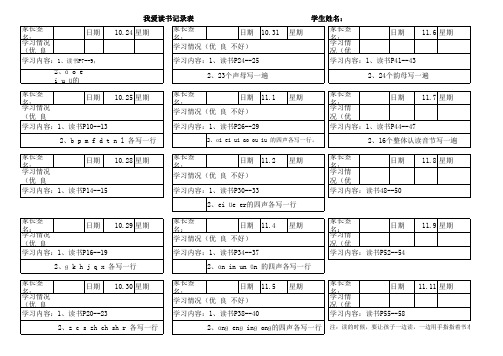 我爱读书记录表 学生姓名:
家长签名: 日期 10.24 星期 家长签名: 日期 10.31 星期 家长签名: 日期 11.6 星期
学习情况(优 良 学习情况(优 良 不好) 学习情况(优
学习内容:1、读书P7--9, 学习内容:1、读书P24--25 学习内容:1、读书P41--43
2、ɑ o e i u ü的 2、23个声母写一遍 2、24个韵母写一遍
家长签名: 日期 10.25 星期 家长签名: 日期 11.1 星期 家长签名: 日期 11.7 星期
学习情况(优 良 学习情况(优 良 不好) 学习情况(优
学习内容:1、读书P10--13 学习内容:1、读书P26--29 学习内容:1、读书P44--47
2、b p m f d t n l 各写一行 2、ɑi ei ui ɑo ou iu 的四声各写一行。 2、16个整体认读音节写一遍
家长签名: 日期 10.28 星期 家长签名: 日期 11.2 星期 家长签名: 日期 11.8 星期
学习情况(优 良 学习情况(优 良 不好) 学习情况(优
学习内容:1、读书P14--15 学习内容:1、读书P30--33 学习内容:读书48--50
2、ei üe er的四声各写一行
家长签名: 日期 10.29 星期 家长签名: 日期 11.4 星期 家长签名: 日期 11.9 星期
学习情况(优 良 学习情况(优 良 不好) 学习情况(优
学习内容:1、读书P16--19 学习内容:1、读书P34--37 学习内容:读书P52--54
2、g k h j q x 各写一行 2、ɑn in un ün 的四声各写一行
家长签名: 日期 10.30 星期 家长签名: 日期 11.5 星期 家长签名: 日期 11.11 星期
学习情况(优 良 学习情况(优 良 不好) 学习情况(优
学习内容:1、读书P20--23 学习内容:1、读书P38--40 学习内容:读书P55--58
2、z c s zh ch sh r 各写一行 2、ɑng eng ing ong的四声各写一行 注:读的时候,要让孩子一边读,一边用手指指着书本